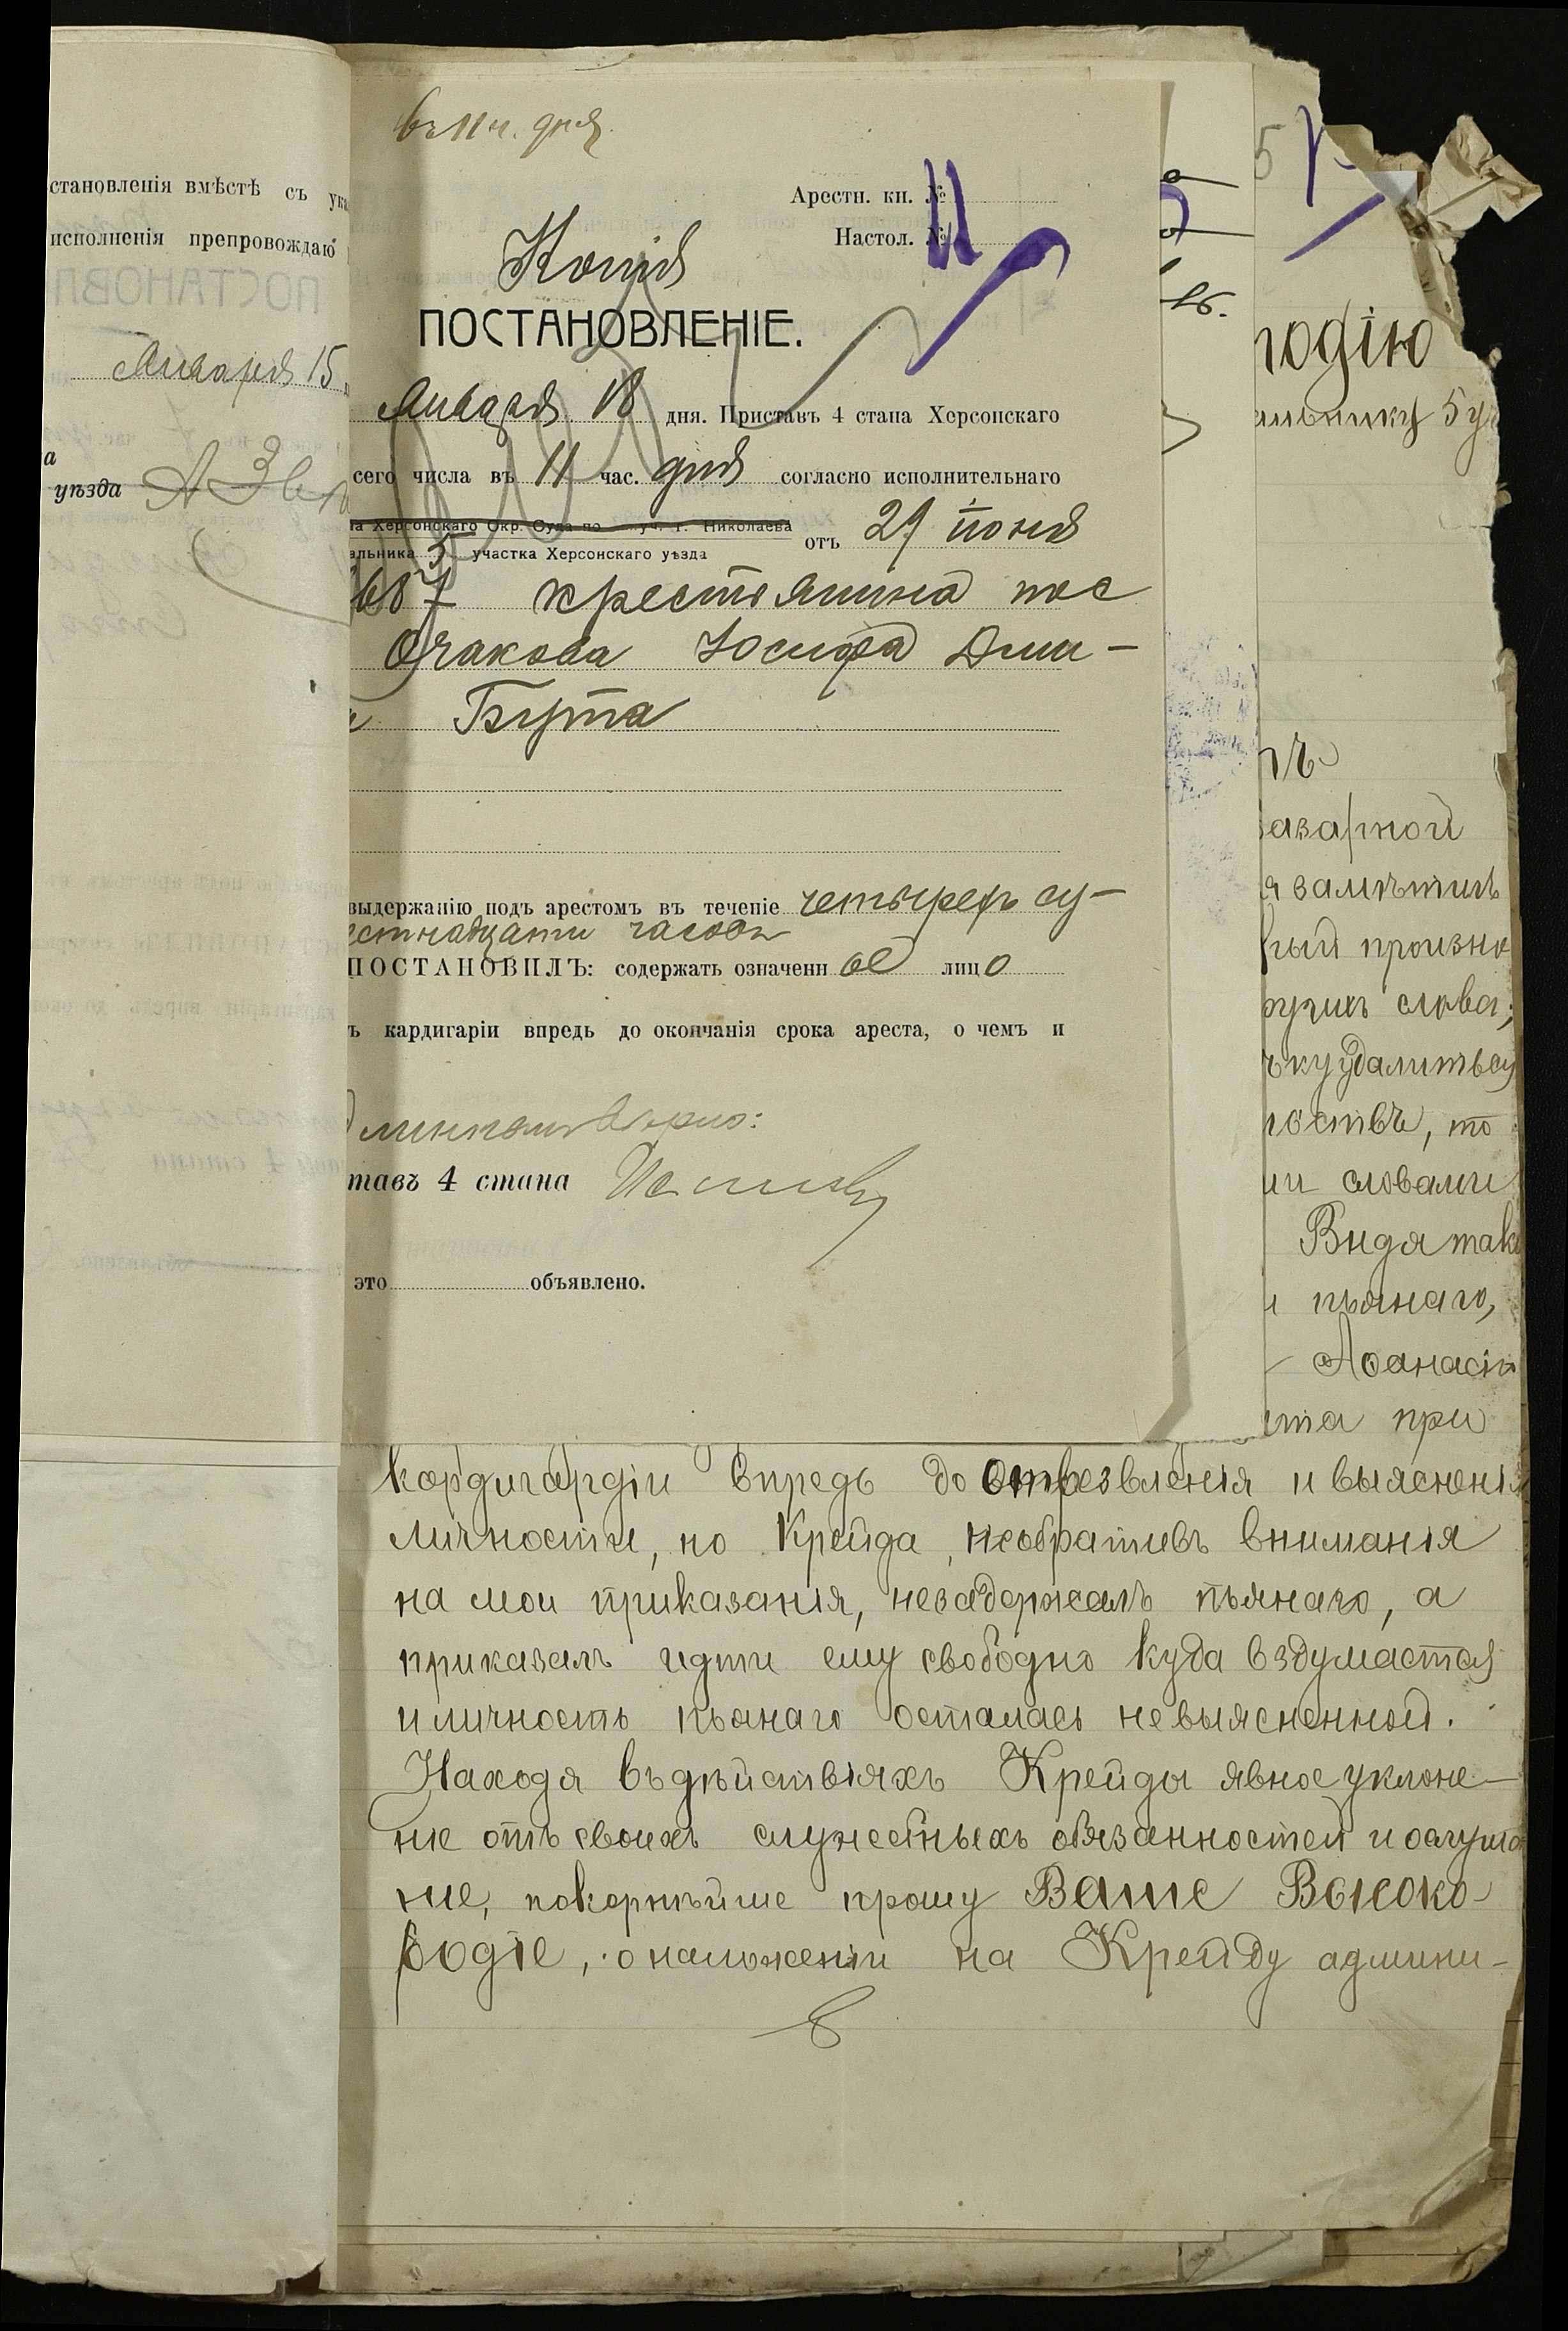 становленія вмѣстѣ съ ука
исполненія препровождаю
Января 15
а
уѣзда
въ 11 ч. дня.
Арестн. кн. №
Настол. №
11
Копія
ПОСТАНОВЛЕНІЕ.
Января 18 дня. Приставъ 4 стана Херсонскаго
сего числа въ 11 час. дня согласно исполнительнаго
на Херсонскаго Окр. Суда по уч. г. Николаева
альника 5 участка Херсонскаго уѣзда отъ 29 іюня
687 крестьянина пос
Очакова Іосифа Дми-
Бута
выдержанію подъ арестомъ въ теченіе четырехъ су-
естнадцати часовъ
ПОСТАНОВИЛЪ: содержать означенн ое лиц о
ъ кардигаріи впредь до окончанія срока ареста, о чемъ и
длиннымъ вѣрно:
тавъ 4 стана
это объявлено.
5
родію
альнику 5 у
азарной
я замѣтилъ
ный произно
ругихъ слова,
ку удалиться
ностьѣ, то
ми словами
Видя таk
пьянаго,
Аѳанасію
та при
кордигардіи впредь до отрезвленія и выясненія
личности, но Крейда, необративъ вниманія
на мои приказанія, незадержалъ пьянаго, а
приказалъ идти ему свободно куда вздумается
и личность пьянаго осталась невыясненной.
Находя въ дѣйствіяхъ Крейды явное уклоне-
ніе отъ своихъ служебныхъ обязанностей и ослуша
ніе, покорнѣйше прошу Ваше Высоко-
родіе, о наложеніи на Крейду админи-